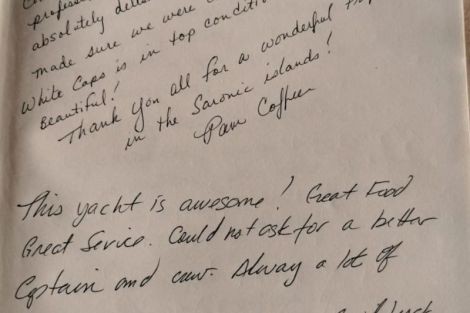 profess
absolutely
made sure we were
White Caps is in top condit
Beautiful!
Thank you all for a wonderful
in the Saronic islands!
Pam
This yacht is awesome! Great Food
Great Service. Could not ask for a better
Captain and crew. Alway a lot of